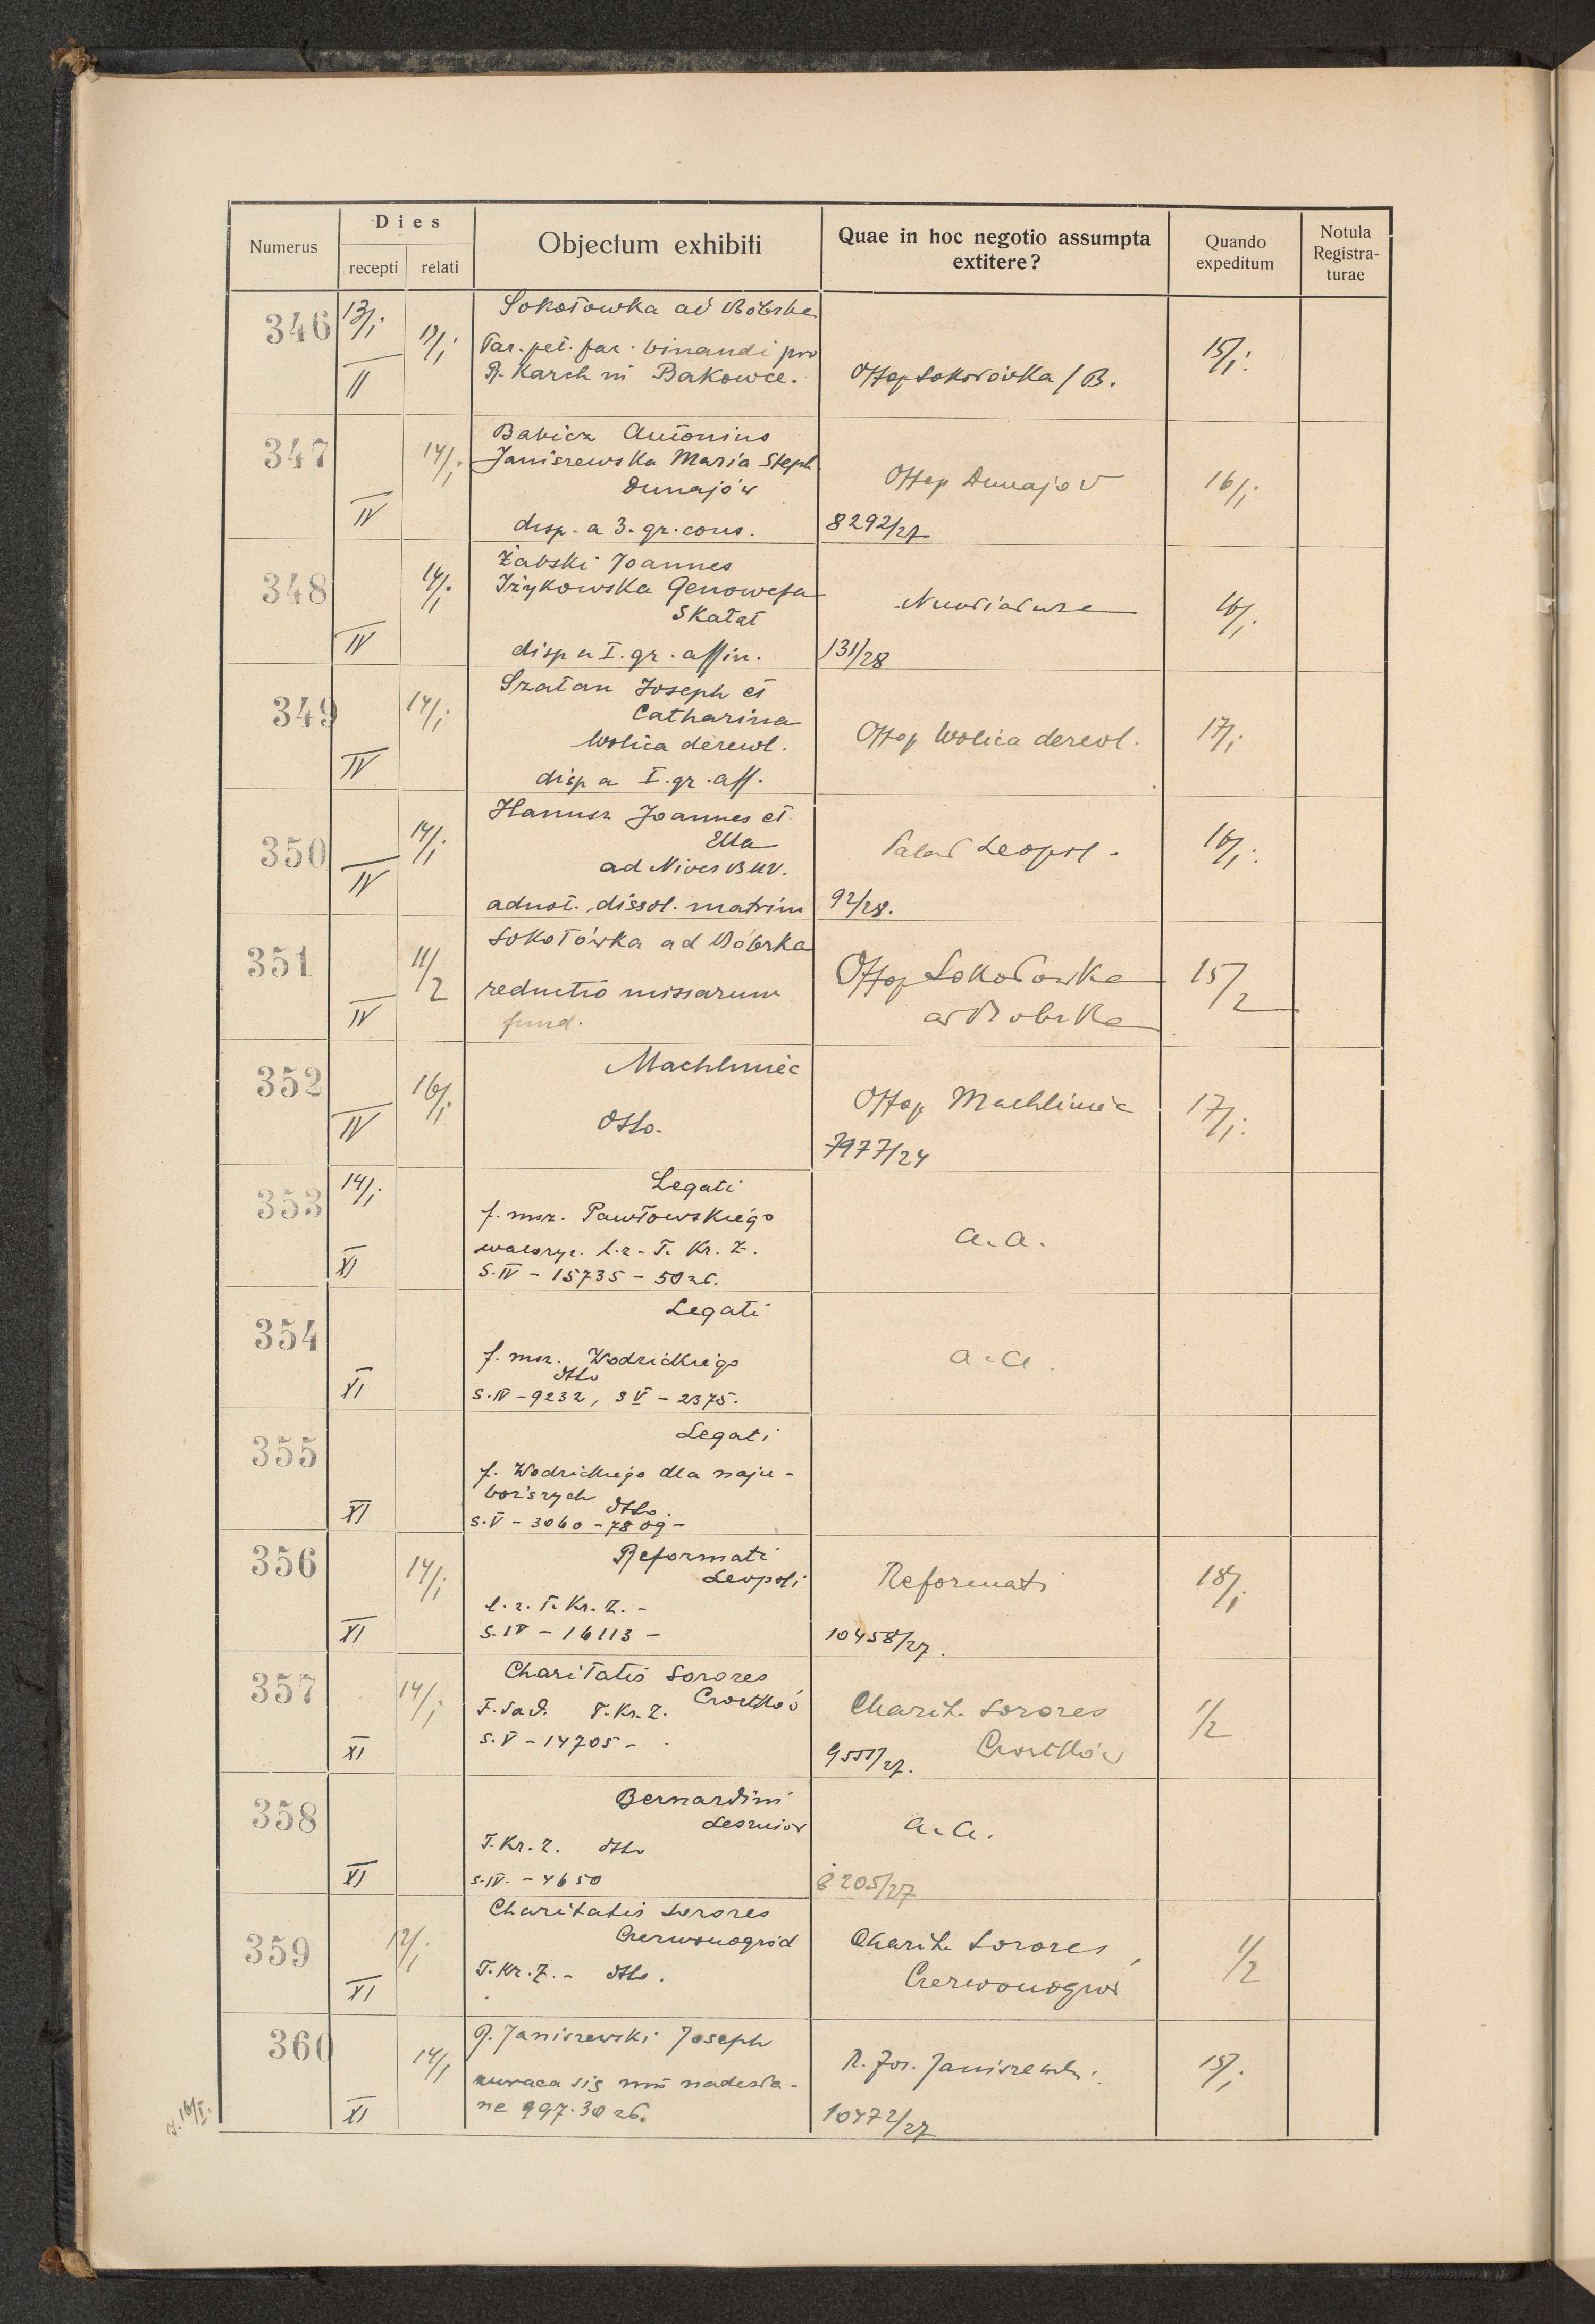 Numerus
Dies
recepti relati
Objectum exhibiti
Quae in hoc negotio assumpta
extitere?
Quando
expeditum
Notula
Registra-
turae
346 13/I
II
Sokołowka ad Bóbrka
Par. pet. fac. binandi pro
R. Karch in Bakowce.
Offop Sokołówka / B.
15/I.
347 14/I.
IV
Babicz Antonius
Janiszewska Maria Steph
Dunajów
disp. a 3. gr. cons.
Offop Dunajov
8292/27
16/I
348 14/I.
IV
Żabski Joannes
Irzykowska Genowefa
Skałat
disp a I. gr. affin.
Nuntiatura
131/28
16/I.
349 14/I
IV
Szatan Joseph et
Catharina
Wolica derewl.
disp a I. gr. aff.
Offop Wolica derewl.
17/I
350 14/I
IV
Hanusz Joannes et
Ella
ad Nives BMV.
adnot. dissol. matrim
Leopol.
92/28.
16/I.
351 11/2
IV
Sokołówka ad Bóbrka
reductio missarum
fund.
Offop Sokołowka
ad Bobrka
15/2
352 16/I.
IV
Machliniec
dtto.
Offop Machliniec
7977/24
17/I.
353 14/I.
XI
Legati
f. msz. Pawłowskiego
waloryz. l.z. T. Kr. Z.
S. IV - 15735 - 50 zł.
a.a.
354
XI
Legati
f. msz. Wodzickiego
dtto
S. IV - 9232, S V - 2375.
a.a.
355
XI
Legati
f. Wodzickiego dla naju-
boższych
dtto.
S. V - 3060 - 7809 -
356 14/I
XI
Reformati
Leopoli
l.z. T. Kr. Z. -
S. IV - 16113 -
Reformati
10458/27.
18/I
357 14/I
XI
Charitatis Sorores
Czortków
T. Kr. Z.
S. V - 14705 -
Charit. Sorores
Czortków
9555/27.
1/2
358
XI
Bernardini
Leszniow
T. Kr. Z. dtto
S. IV. - 4650
a.a.
8205/27
359 12/I
XI
Charitatis Sorores
Czerwonogród
T. Kr. Z. - dtto.
Charit. Sorores,
Czerwonogród
1/2
360 14/I
XI
R. Janiszewski Joseph
zwraca się mu nadesła-
ne 997.30 zł.
R. Jos. Janiszewski.
10472/27
15/I
z. 16/I.